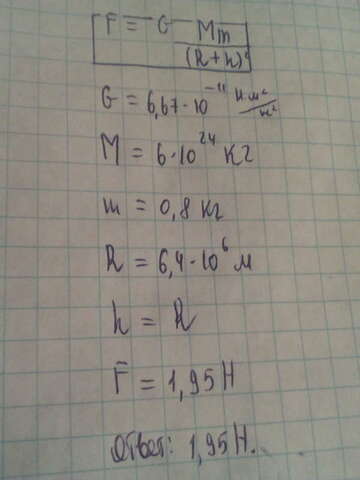 F = G Mm
(R+h)²
G = 6,67·10⁻¹¹ Н·м²/кг²
M = 6·10²⁴ кг
m = 0,8 кг
R = 6,4·10⁶ м
h = R
F = 1,95 Н
Ответ: 1,95 Н.